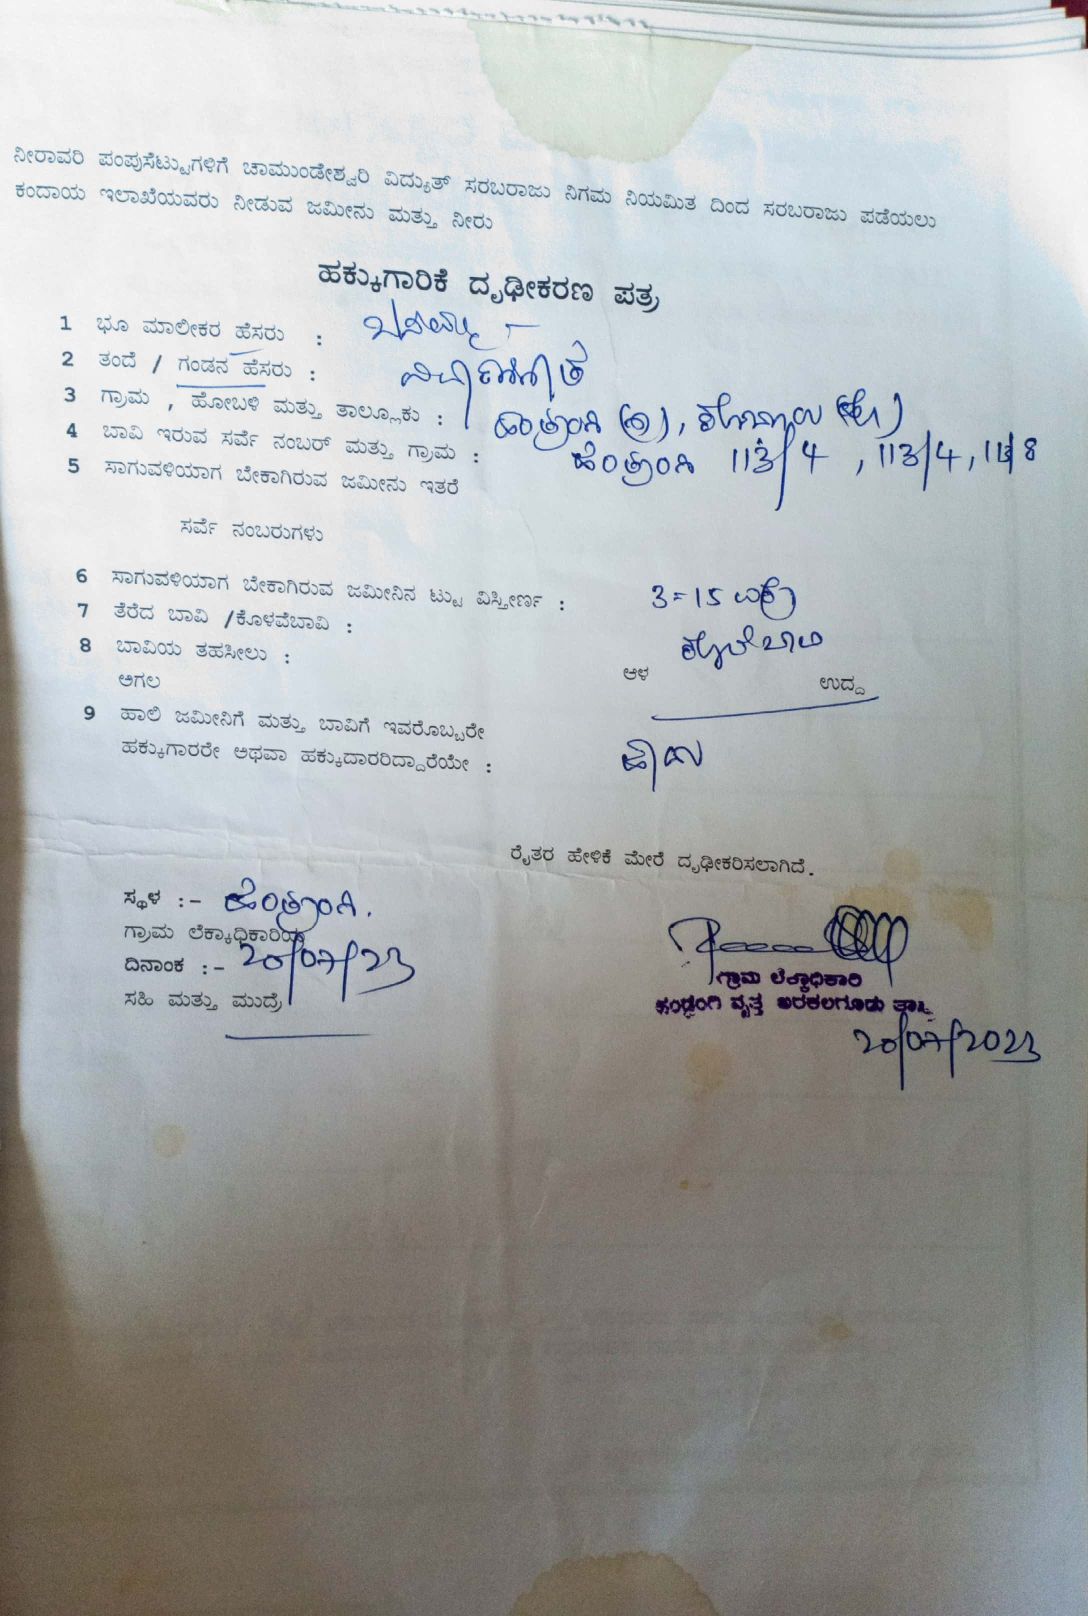 ನೀರಾವರಿ ಪಂಪುಸೆಟ್ಟುಗಳಿಗೆ ಚಾಮುಂಡೇಶ್ವರಿ ವಿದ್ಯುತ್ ಸರಬರಾಜು ನಿಗಮ ನಿಯಮಿತ ದಿಂದ ಸರಬರಾಜು ಪಡೆಯಲು
ಕಂದಾಯ ಇಲಾಖೆಯವರು ನೀಡುವ ಜಮೀನು ಮತ್ತು ನೀರು
ಹಕ್ಕುಗಾರಿಕೆ ದೃಢೀಕರಣ ಪತ್ರ
1 ಭೂ ಮಾಲೀಕರ ಹೆಸರು :
2 ತಂದೆ / ಗಂಡನ ಹೆಸರು :
3 ಗ್ರಾಮ , ಹೋಬಳಿ ಮತ್ತು ತಾಲ್ಲೂಕು :
4 ಬಾವಿ ಇರುವ ಸರ್ವೆ ನಂಬರ್ ಮತ್ತು ಗ್ರಾಮ : 113/4 , 113/4 ,
5 ಸಾಗುವಳಿಯಾಗ ಬೇಕಾಗಿರುವ ಜಮೀನು ಇತರೆ
ಸರ್ವೆ ನಂಬರುಗಳು
6 ಸಾಗುವಳಿಯಾಗ ಬೇಕಾಗಿರುವ ಜಮೀನಿನ ಟ್ಟು ವಿಸ್ತೀರ್ಣ : 3=15 ಎಕ್ರೆ
7 ತೆರೆದ ಬಾವಿ /ಕೊಳವೆಬಾವಿ : ಕೊಳವೆಬಾವಿ
8 ಬಾವಿಯ ತಹಸೀಲು :
ಅಗಲ ಆಳ ಉದ್ದ
9 ಹಾಲಿ ಜಮೀನಿಗೆ ಮತ್ತು ಬಾವಿಗೆ ಇವರೊಬ್ಬರೇ
ಹಕ್ಕುಗಾರರೇ ಅಥವಾ ಹಕ್ಕುದಾರರಿದ್ದಾರೆಯೇ : ಹೌದು
ರೈತರ ಹೇಳಿಕೆ ಮೇರೆ ದೃಢೀಕರಿಸಲಾಗಿದೆ.
ಸ್ಥಳ :-
ಗ್ರಾಮ ಲೆಕ್ಕಾಧಿಕಾರಿಯ
ದಿನಾಂಕ :- 20/07/23
ಸಹಿ ಮತ್ತು ಮುದ್ರೆ
ಗ್ರಾಮ ಲೆಕ್ಕಾಧಿಕಾರಿ
ವೃತ್ತ ಅರಕಲಗೂಡು ತಾ||
20/07/2023